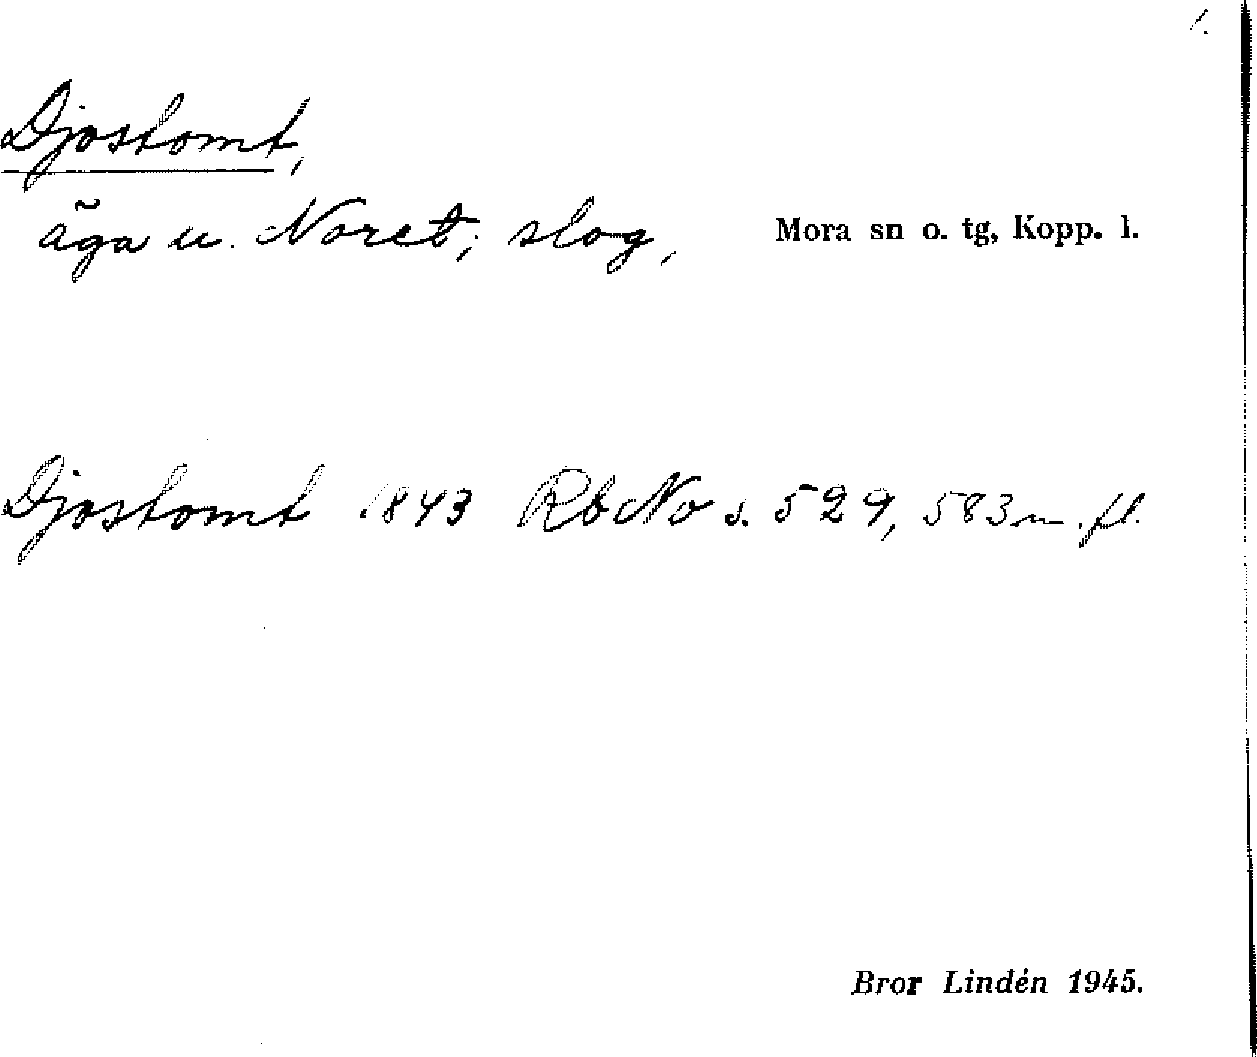 1.
Djostomt,
äga u. Noret; slog, Mora sn o. tg, Kopp. l.
Djostomt 1843 RbNo s. 529, 583 m. fl.
Bror Lindén 1945.